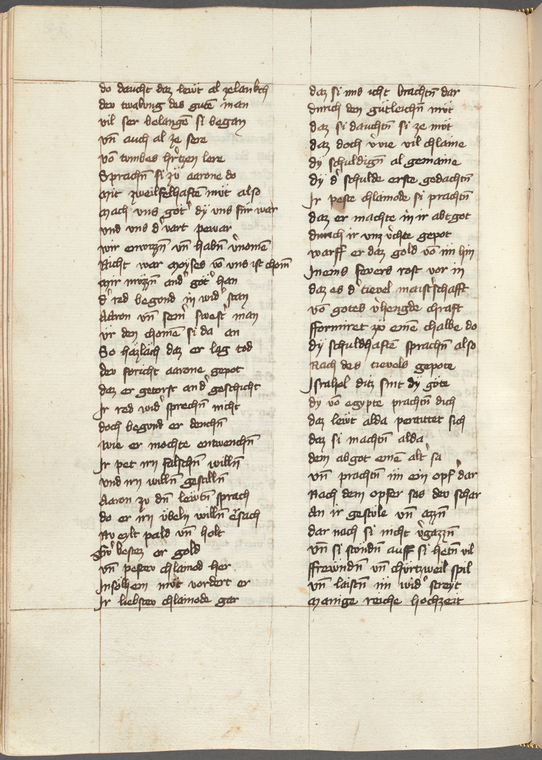 do daucht daz lewt al zelanckh
der twalung des gutē man
vil ser belangē si began
vn̄ auch al ze sere
vō tumbes hr̄tzen lere
Sprachn̄ si zů aarone do
mit zweifelhaftē můt also
mach vns göt dy vns für war
vnd vns d vart pewar
wir vn̄ hadn̄
Nicht war moyses vō vns ist chom̄
wir můzn̄ and göt han
d red begund in wid stan
Aaron vn̄ sein swest man
vt den chomē si da an
So daz er lag tod
der foricht aarone gepot
daz er getorst and geschicht
Jr red wid sprechn̄ nicht
doch begund er denchn̄
wie er mochte entwenchn̄
Jr pet irn falschn̄ willn̄
vnd irn willn̄ gestilln̄
Aaron zu dn̄ lewtn̄ sprach
do er irn übeln willn̄ ersach
Nu eylt pald vn̄ holt
Sw besez er gold
vn̄ pester chlainod her
můt vordert er
Jr liebsten chlainode gar
daz si ims icht brachtn̄ dar
durich den gütleichn̄ můt
daz si dauchtn̄ si ze můt
daz doch wie vil chlaine
dy schuldign̄ al gemaine
dy d schulde erste gedachtn̄
Jr peste chlainode si prachtn̄
daz er machte in ir abtgot
durich ir gepot
warff er daz gold vō im hin
Jnens fewers rost vor in
daz es d tievel maistschafft
vō gotes vhengde chraft
fformiret zů eine chalbe do
dy schuldhaftē sprachn̄ also
Nach des tievels gepote
Jsrahel ditz sint dy göte
dy vō egypte prachtn̄ dich
daz lewt alda sich
daz si machtn̄ alda
dem abgot einē alt sa
vn̄ prachtn̄ im ein opf dar
Nach dem opfer sas der schar
an ir gestüle vn̄ azzn̄
dar nach si nicht vgazzn̄
vn̄ si stondn̄ auff si hetn̄ vil
ffrewndn̄ vn̄ churtzweil spil
vn̄ laistn̄ im wid streyt
Manige reiche hochzeit